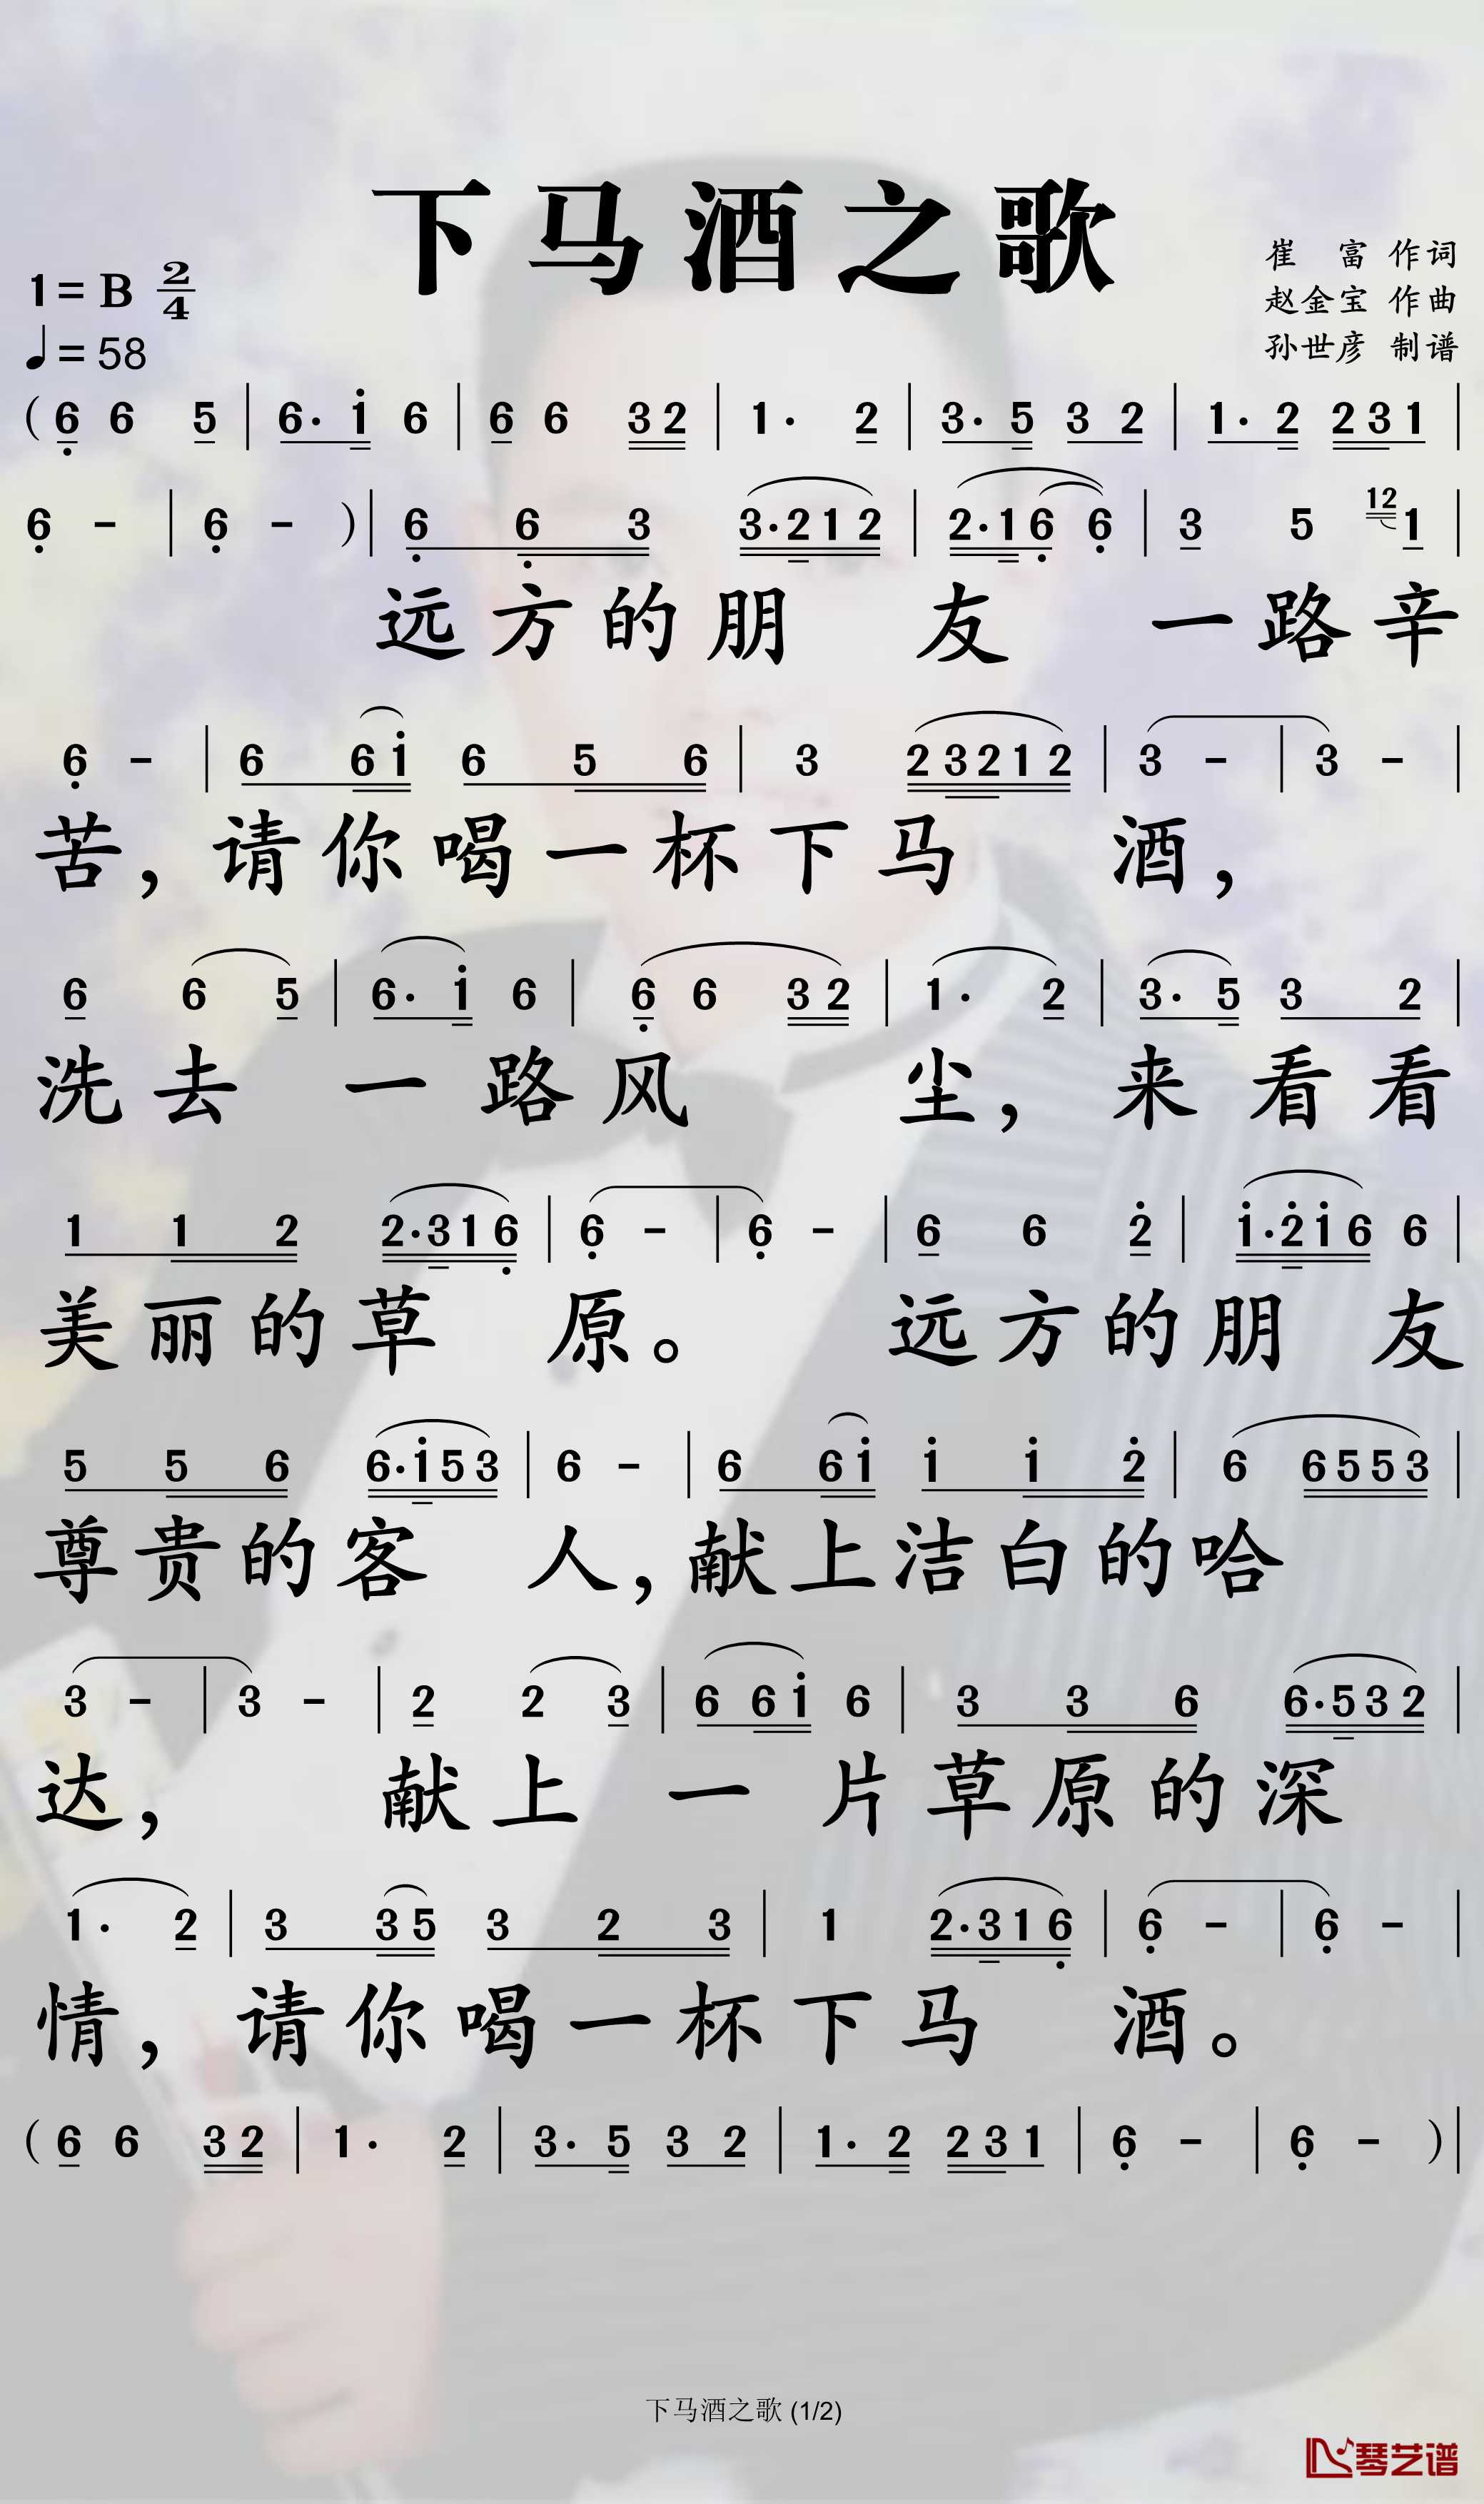 下马酒之歌
崔 富 作词
1= B 2/4
赵金宝 作曲
♩= 58
孙世彦 制谱
( 6̣ 6 5 | 6· i̇ 6 | 6 6 3 2 | 1· 2 | 3· 5 3 2 | 1· 2 2 3 1 |
6̣ - | 6̣ - ) | 6̣ 6̣ 3 3·2 1 2 | 2·1 6̣ 6̣ | 3 5 12 1 |
远方的朋 友 一路辛
6̣ - | 6 6 i̇ 6 5 6 | 3 2 3 2 1 2 | 3 - | 3 - |
苦,请你喝一杯下马 酒,
6 6 5 | 6· i̇ 6 | 6̣ 6 3 2 | 1· 2 | 3· 5 3 2 |
洗去 一路风 尘,来看看
1 1 2 2·3 1 6̣ | 6̣ - | 6̣ - | 6 6 2̇ | i̇·2̇ i̇ 6 6 |
美丽的草 原。 远方的朋 友
5 5 6 6·i̇ 5 3 | 6 - | 6 6 i̇ i̇ i̇ 2̇ | 6 6 5 5 3 |
尊贵的客 人,献上洁白的哈
3 - | 3 - | 2 2 3 | 6 6 i̇ 6 | 3 3 6 6·5 3 2 |
达, 献上 一 片草原的深
1· 2 | 3 3 5 3 2 3 | 1 2·3 1 6̣ | 6̣ - | 6̣ - |
情,请你喝一杯下马 酒。
( 6 6 3 2 | 1· 2 | 3· 5 3 2 | 1· 2 2 3 1 | 6̣ - | 6̣ - ) |
下马酒之歌 (1/2)
琴艺谱